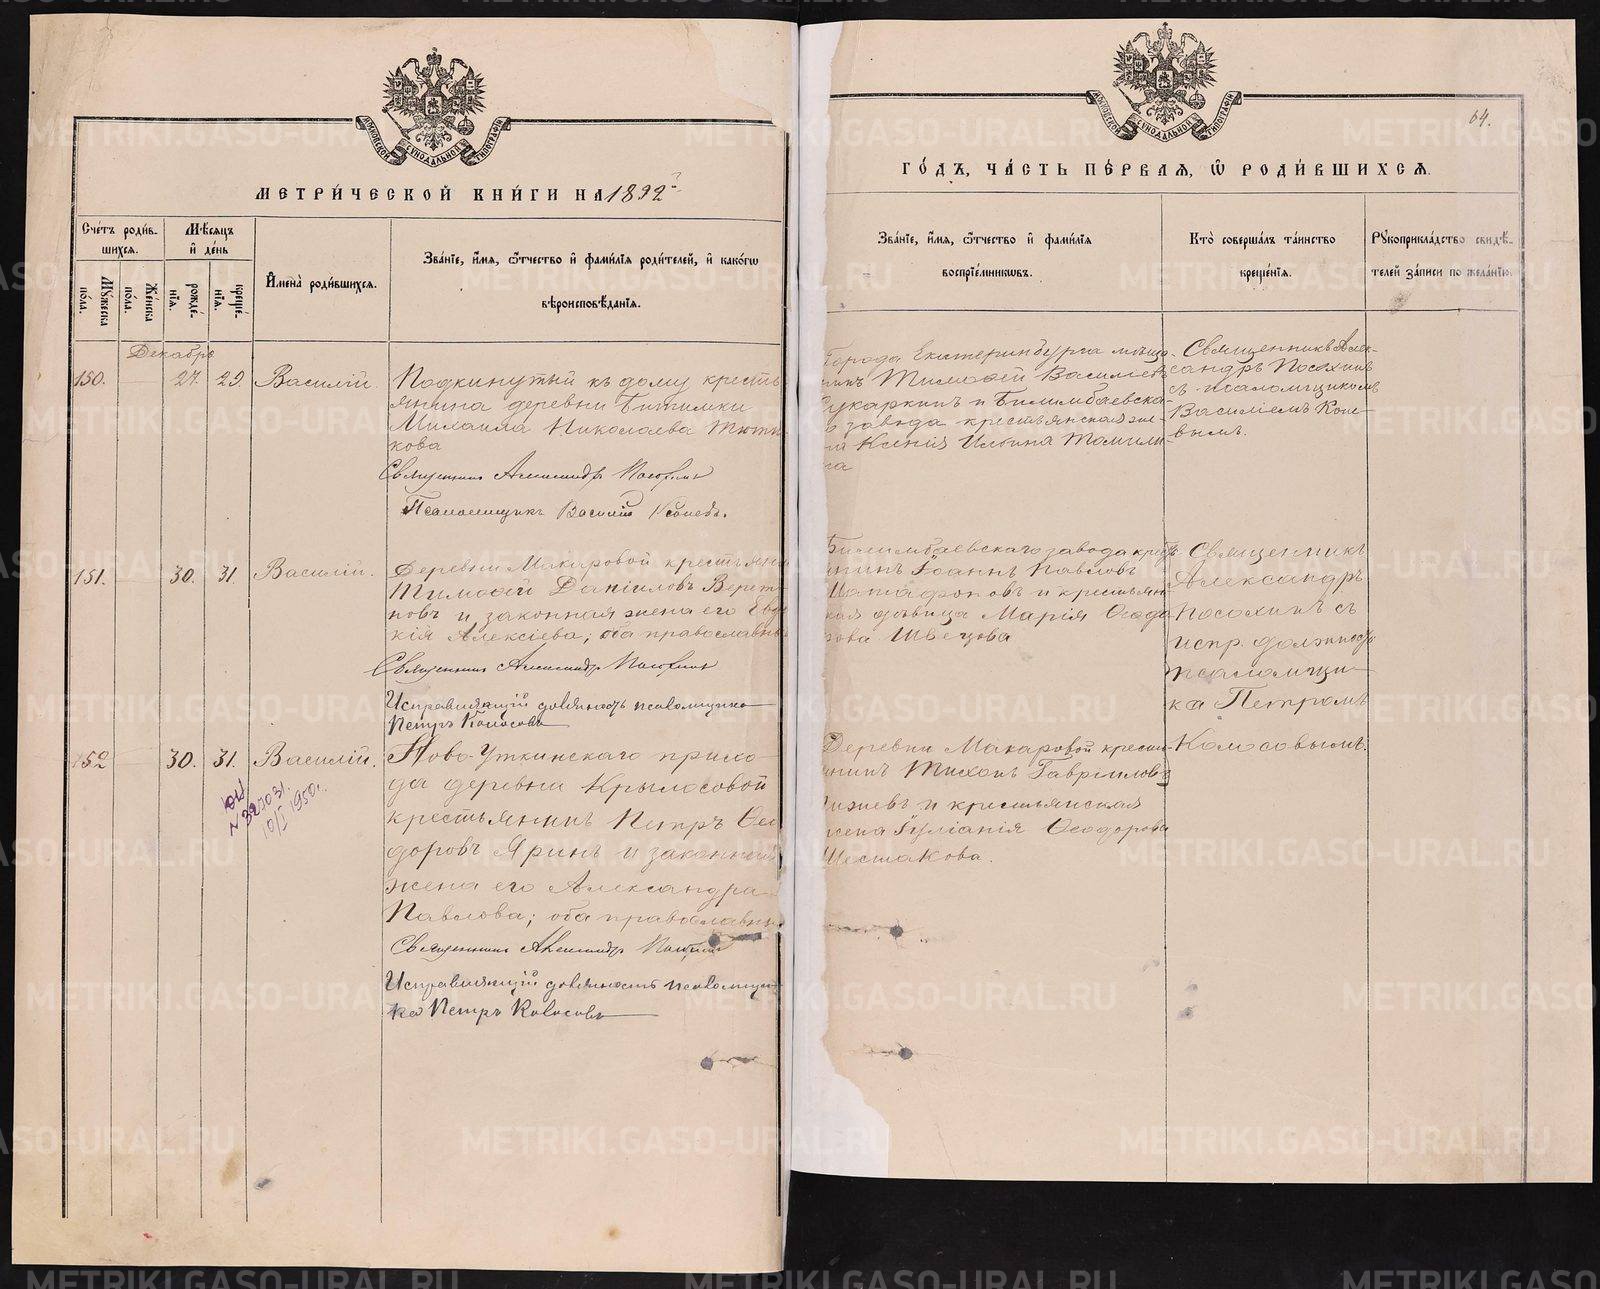 МЕТРИ́ЧЕСКОЙ КНИ́ГИ НА 1892
Сче́тъ роди́в-
шихсѧ.
Мѣ́сѧцъ
и҆ де́нь
Мꙋ́жеска по́ла.
Же́нска по́ла.
рожде́-
нїѧ.
креще́-
нїѧ.
И҆мена̀ роди́вшихсѧ.
Зва́нїе, и҆́мѧ, ѻ҆́тчество и҆ фами́лїѧ роди́телей, и҆ како́гѡ
вѣроисповѣ́данїѧ.
Декабрь
150.
27.
29.
Василій.
Подкинутый къ дому кресть
янина деревни Битимки
Михаила Николаева Тюти
кова
Священникъ Александръ Посохинъ
Псаломщикъ Василій Коневъ.
151.
30.
31.
Василій.
Деревни Макаровой крестьяни
Тимоѳей Даніиловъ Верет
новъ и законная жена его Евдо
кія Алексіева; оба православны
Священникъ Александръ Посохинъ
Исправляющій должность псаломщика
Петръ Колосовъ
152
30.
31.
Василій.
Ново-Уткинскаго прихо
да деревни Крылосовой
крестьянинъ Петръ Ѳео
доровъ Яринъ и законная
жена его Александра
Павлова; оба православны
Священникъ Александръ Посохинъ
Исправляющій должность псаломщи-
ка Петръ Колосовъ
ЮЦ
№ 327031.
10/I 1950г.
МОСКОВСКОЙ СѴНОДАЛЬНОЙ ТИПОГРАФІИ
64.
ГО́ДЪ, ЧА́СТЬ ПЕ́РВАѦ, Ѡ҆ РОДИ́ВШИХСѦ.
Зва́нїе, и҆́мѧ, ѻ҆́тчество и҆ фами́лїѧ
воспрїе́мникѡвъ.
Кто̀ соверша́лъ та́инство
креще́нїѧ.
Рꙋкоприкла́дство свидѣ́-
телей за́писи по жела́нїю.
Города Екатеринбурга мѣща-
нинъ Тимоѳей Васильевъ
Сукаркинъ и Билимбаевска-
го завода крестьянская же-
на Ксенія Ильина Томили
на
Священникъ Алек-
сандръ Посохинъ
съ псаломщикомъ
Василіемъ Коне-
вымъ.
Билимбаевскаго завода кресть
янинъ Іоаннъ Павловъ
и крестьян
ская дѣвица Марія Ѳеодо
рова Швецова
Священникъ
Александръ
Посохинъ съ
испр. должность
псаломщи-
ка Петромъ
Колосовымъ.
Деревни Макаровой кресть-
янинъ Тихонъ Гавріиловъ
и крестьянская
жена Іуліанія Ѳеодорова
Шестакова.
METRIKI.GASO-URAL.RU